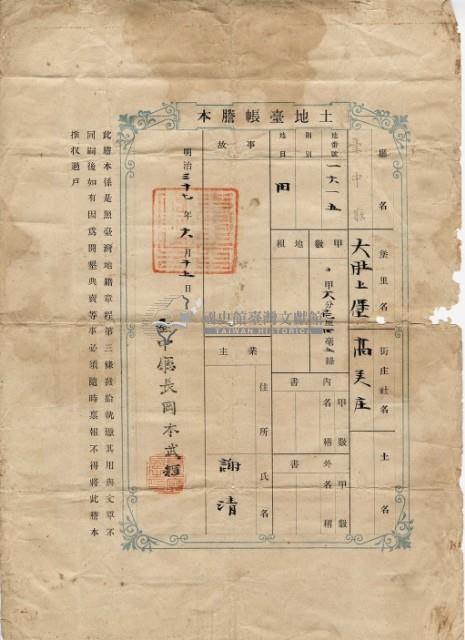 土地臺帳謄本
廳名
臺中廳
堡里名
大肚上堡
街庄社名
高美庄
土名
地番號
一六一五
類別
地目
田
甲數
地租
甲六分
內書
甲數
名稱
外書
甲數
名稱
事故
業主
住所
氏名
謝清
明治三十七年六月十五日
臺中廳長岡本武輝
此謄本係是照臺灣地籍章程第三條發給執照其用與文單不
同嗣後如有因爲開墾典賣等事必須隨時稟報不得將此謄本
推收過戶
國史館臺灣文獻館
TAIWAN HISTORICA